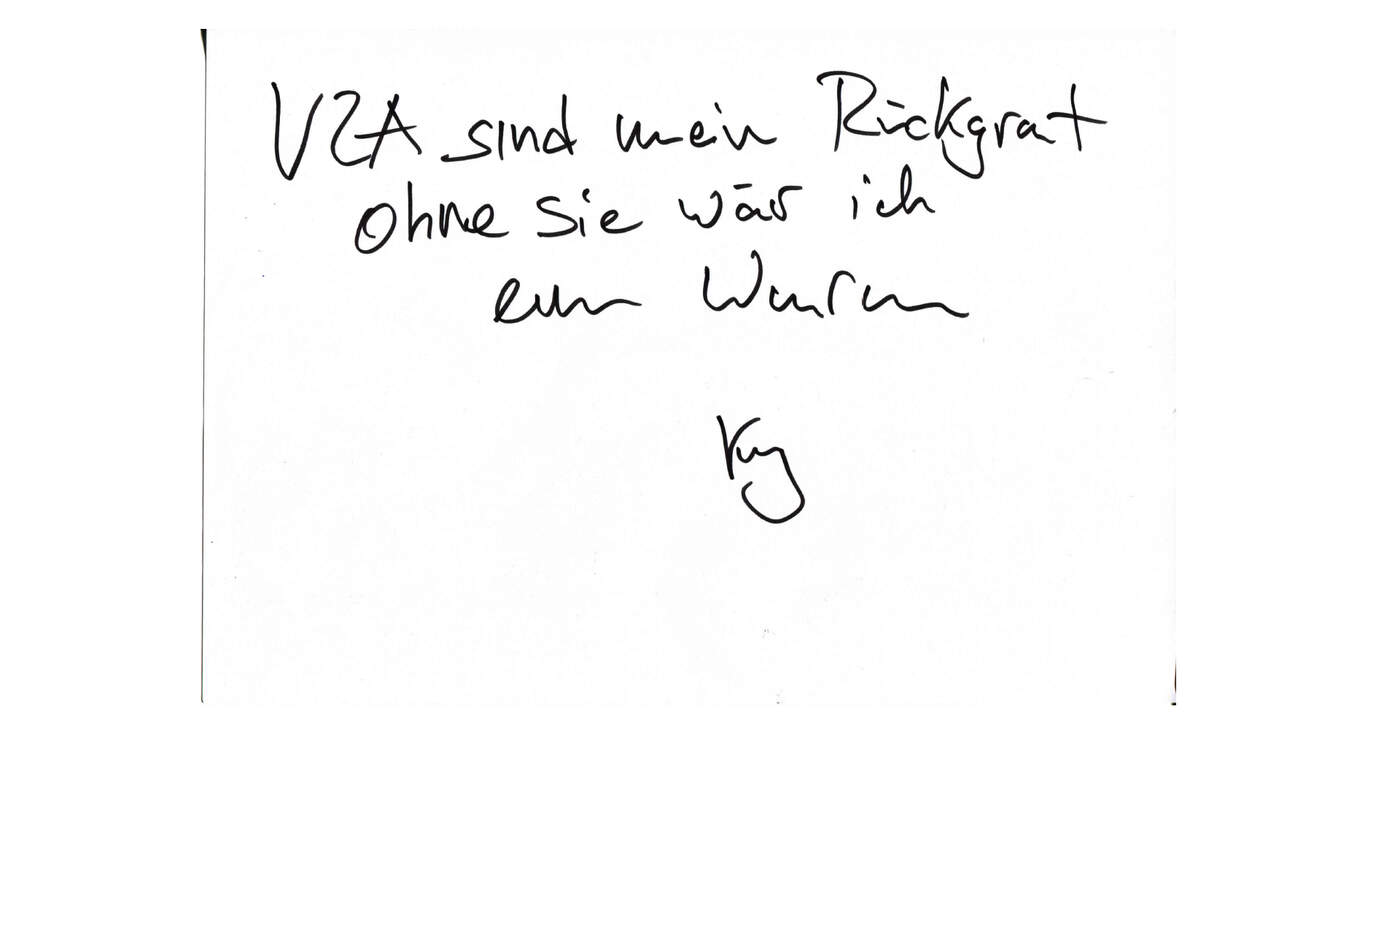 VZA sind mein Rückgrat
ohne Sie wär ich
ein Wurm